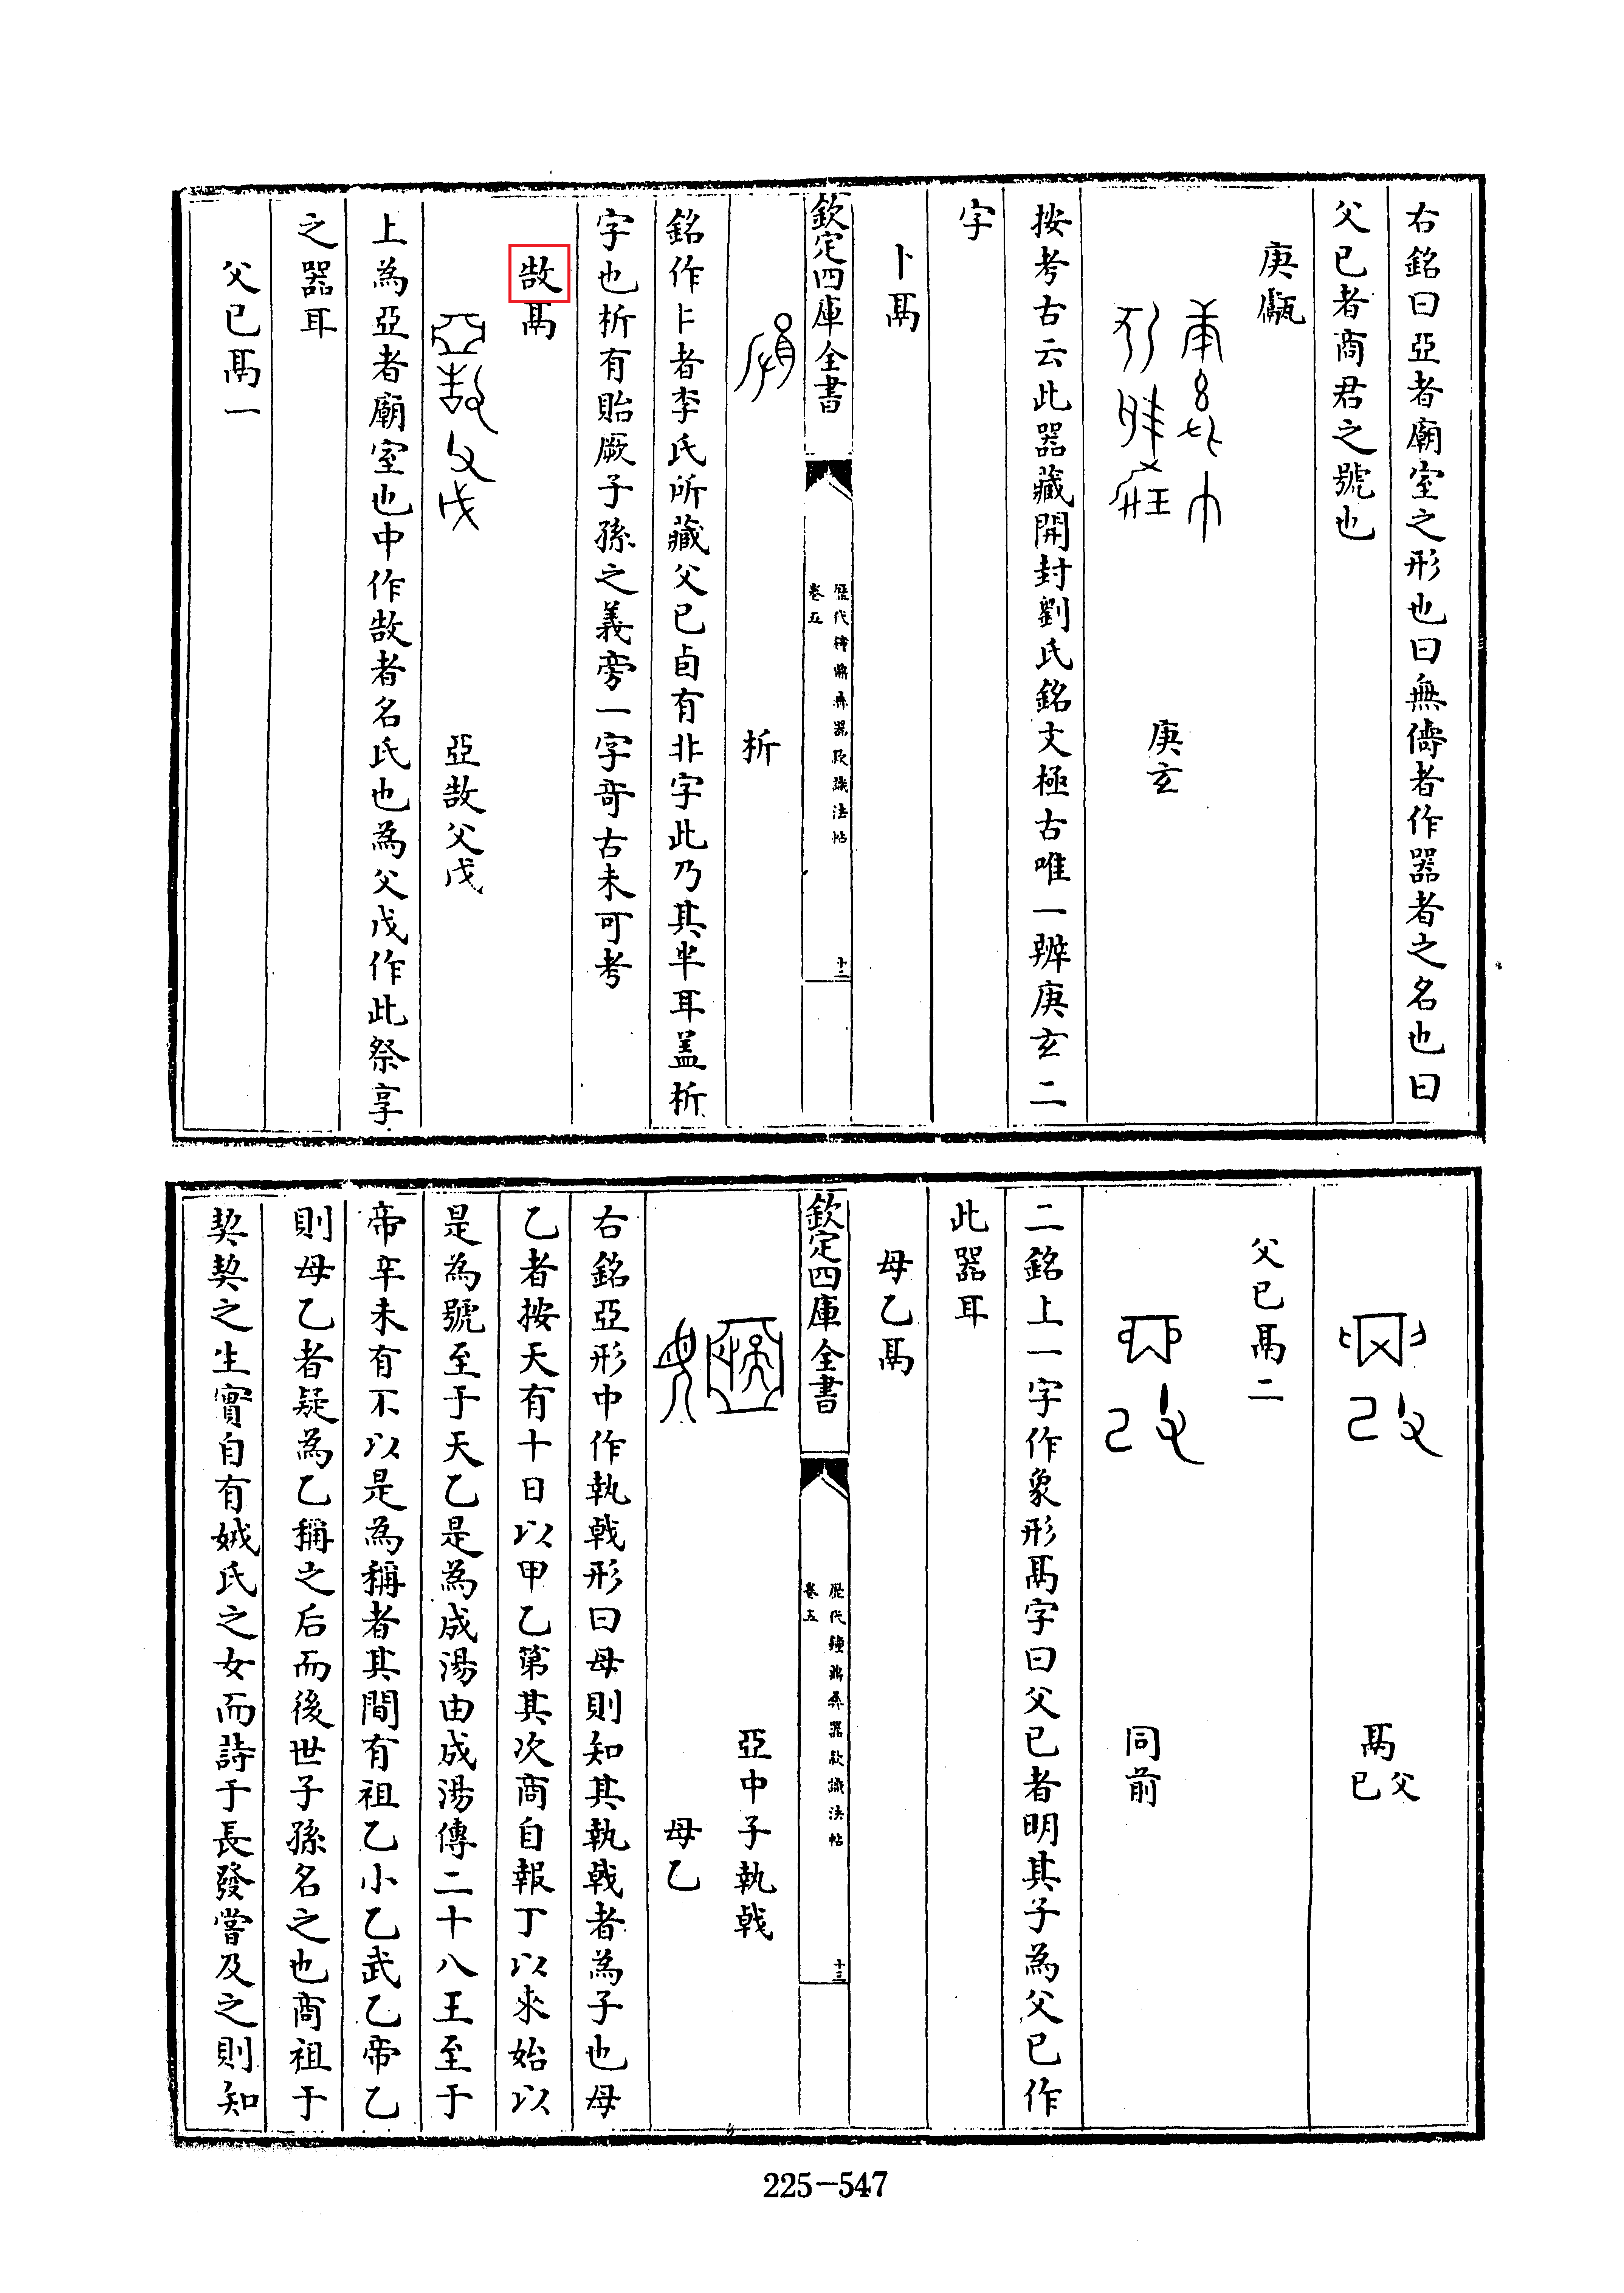 右銘曰亞者廟室之形也曰無儔者作器者之名也曰
父已者商君之號也
庚甗
庚玄
按考古云此器藏開封劉氏銘文極古唯一辨庚玄二
字
卜鬲
欽定四庫全書
歷代鐘鼎彝器款識法帖
卷五
十二
析
銘作卜者李氏所藏父已卣有非字此乃其半耳盖析
字也析有貽厥子孫之義旁一字奇古未可考
鬲
亞父戊
上為亞者廟室也中作者名氏也為父戊作此祭享
之器耳
父已鬲一
鬲父已
父已鬲二
同前
二銘上一字作象形鬲字曰父已者明其子為父已作
此器耳
母乙鬲
欽定四庫全書
歷代鐘鼎彝器款識法帖
卷五
十三
亞中子執戟
母乙
右銘亞形中作執戟形曰母則知其執戟者為子也母
乙者按天有十日以甲乙第其次商自報丁以來始以
是為號至于天乙是為成湯由成湯傳二十八王至于
帝辛未有不以是為稱者其間有祖乙小乙武乙帝乙
則母乙者疑為乙稱之后而後世子孫名之也商祖于
契契之生實自有娀氏之女而詩于長發嘗及之則知
225-547